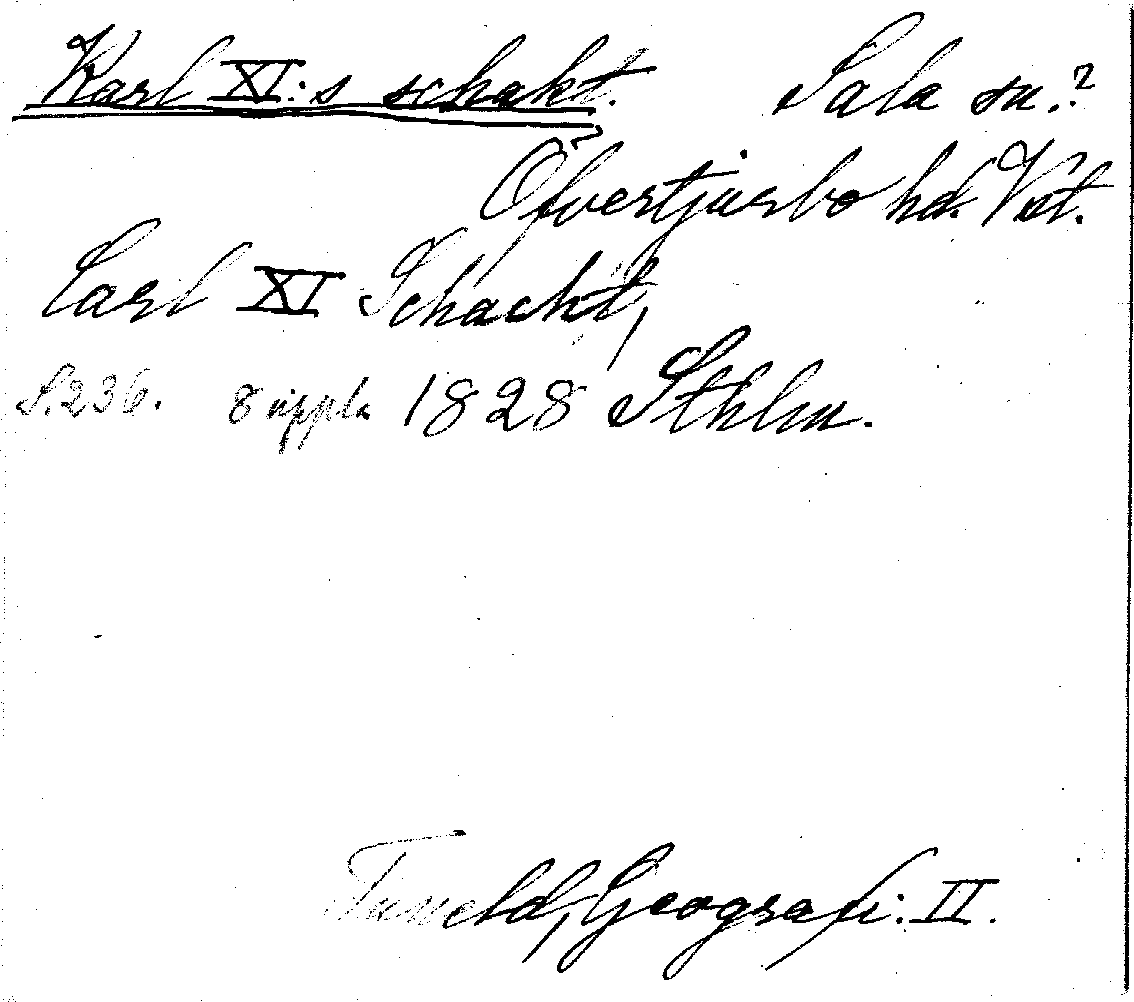 Karl XI:s schakt. Sala sn.?
Öfvertjurbo hd. Vstl.
Carl XI Schacht,
S. 236. 8 uppl. 1828 Sthlm.
Tuneld, Geografi. II.